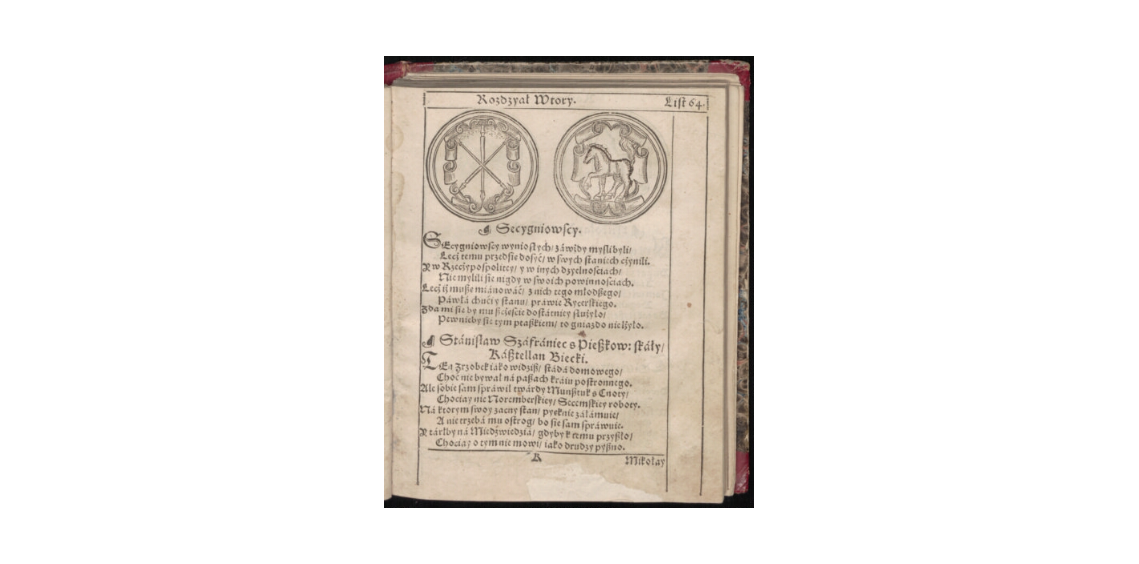 Rozdzyał Wtory.
List 64.
Secygniowscy.
SEcygniowscy wyniosłych/ záwżdy myśli byli/
Lecż temu przedsie dosyć/ w swych staniech cżynili.
Y w Rzecżypospolitey/ y w inych dzyelnościách/
Nie mylili sie nigdy w swoich powinnościách.
Lecż iż muszę miánowáć/ z nich tego młodszego/
Páwłá chući y stanu/ práwie Rycerskiego.
Zda mi sie by mu szcżęście dostátnicy służyło/
Pewnieby sie tym ptaszkiem/ to gniazdo niełżyło.
Stánisław Száfrániec s Pieszkow: skáły/
Kásztellan Biecki.
TEn Zrzobek iáko widzisz/ stádá domowego/
Choć nie bywał ná paszach kráiu postronnego.
Ale sobie sam spráwił twárdy Munsztuk s Cnoty/
Chociay nie Noremberskiey/ Secemskiey roboty.
Ná ktorym swoy zacny stan/ pyęknie záłámuie/
A nie trzebá mu ostrog/ bo sie sam spráwuie.
Y tárłby ná Miedźwiedziá/ gdyby k temu przyszło/
Chociaż o tym nie mowi/ iáko drudzy pyszno.
K
Mikołay